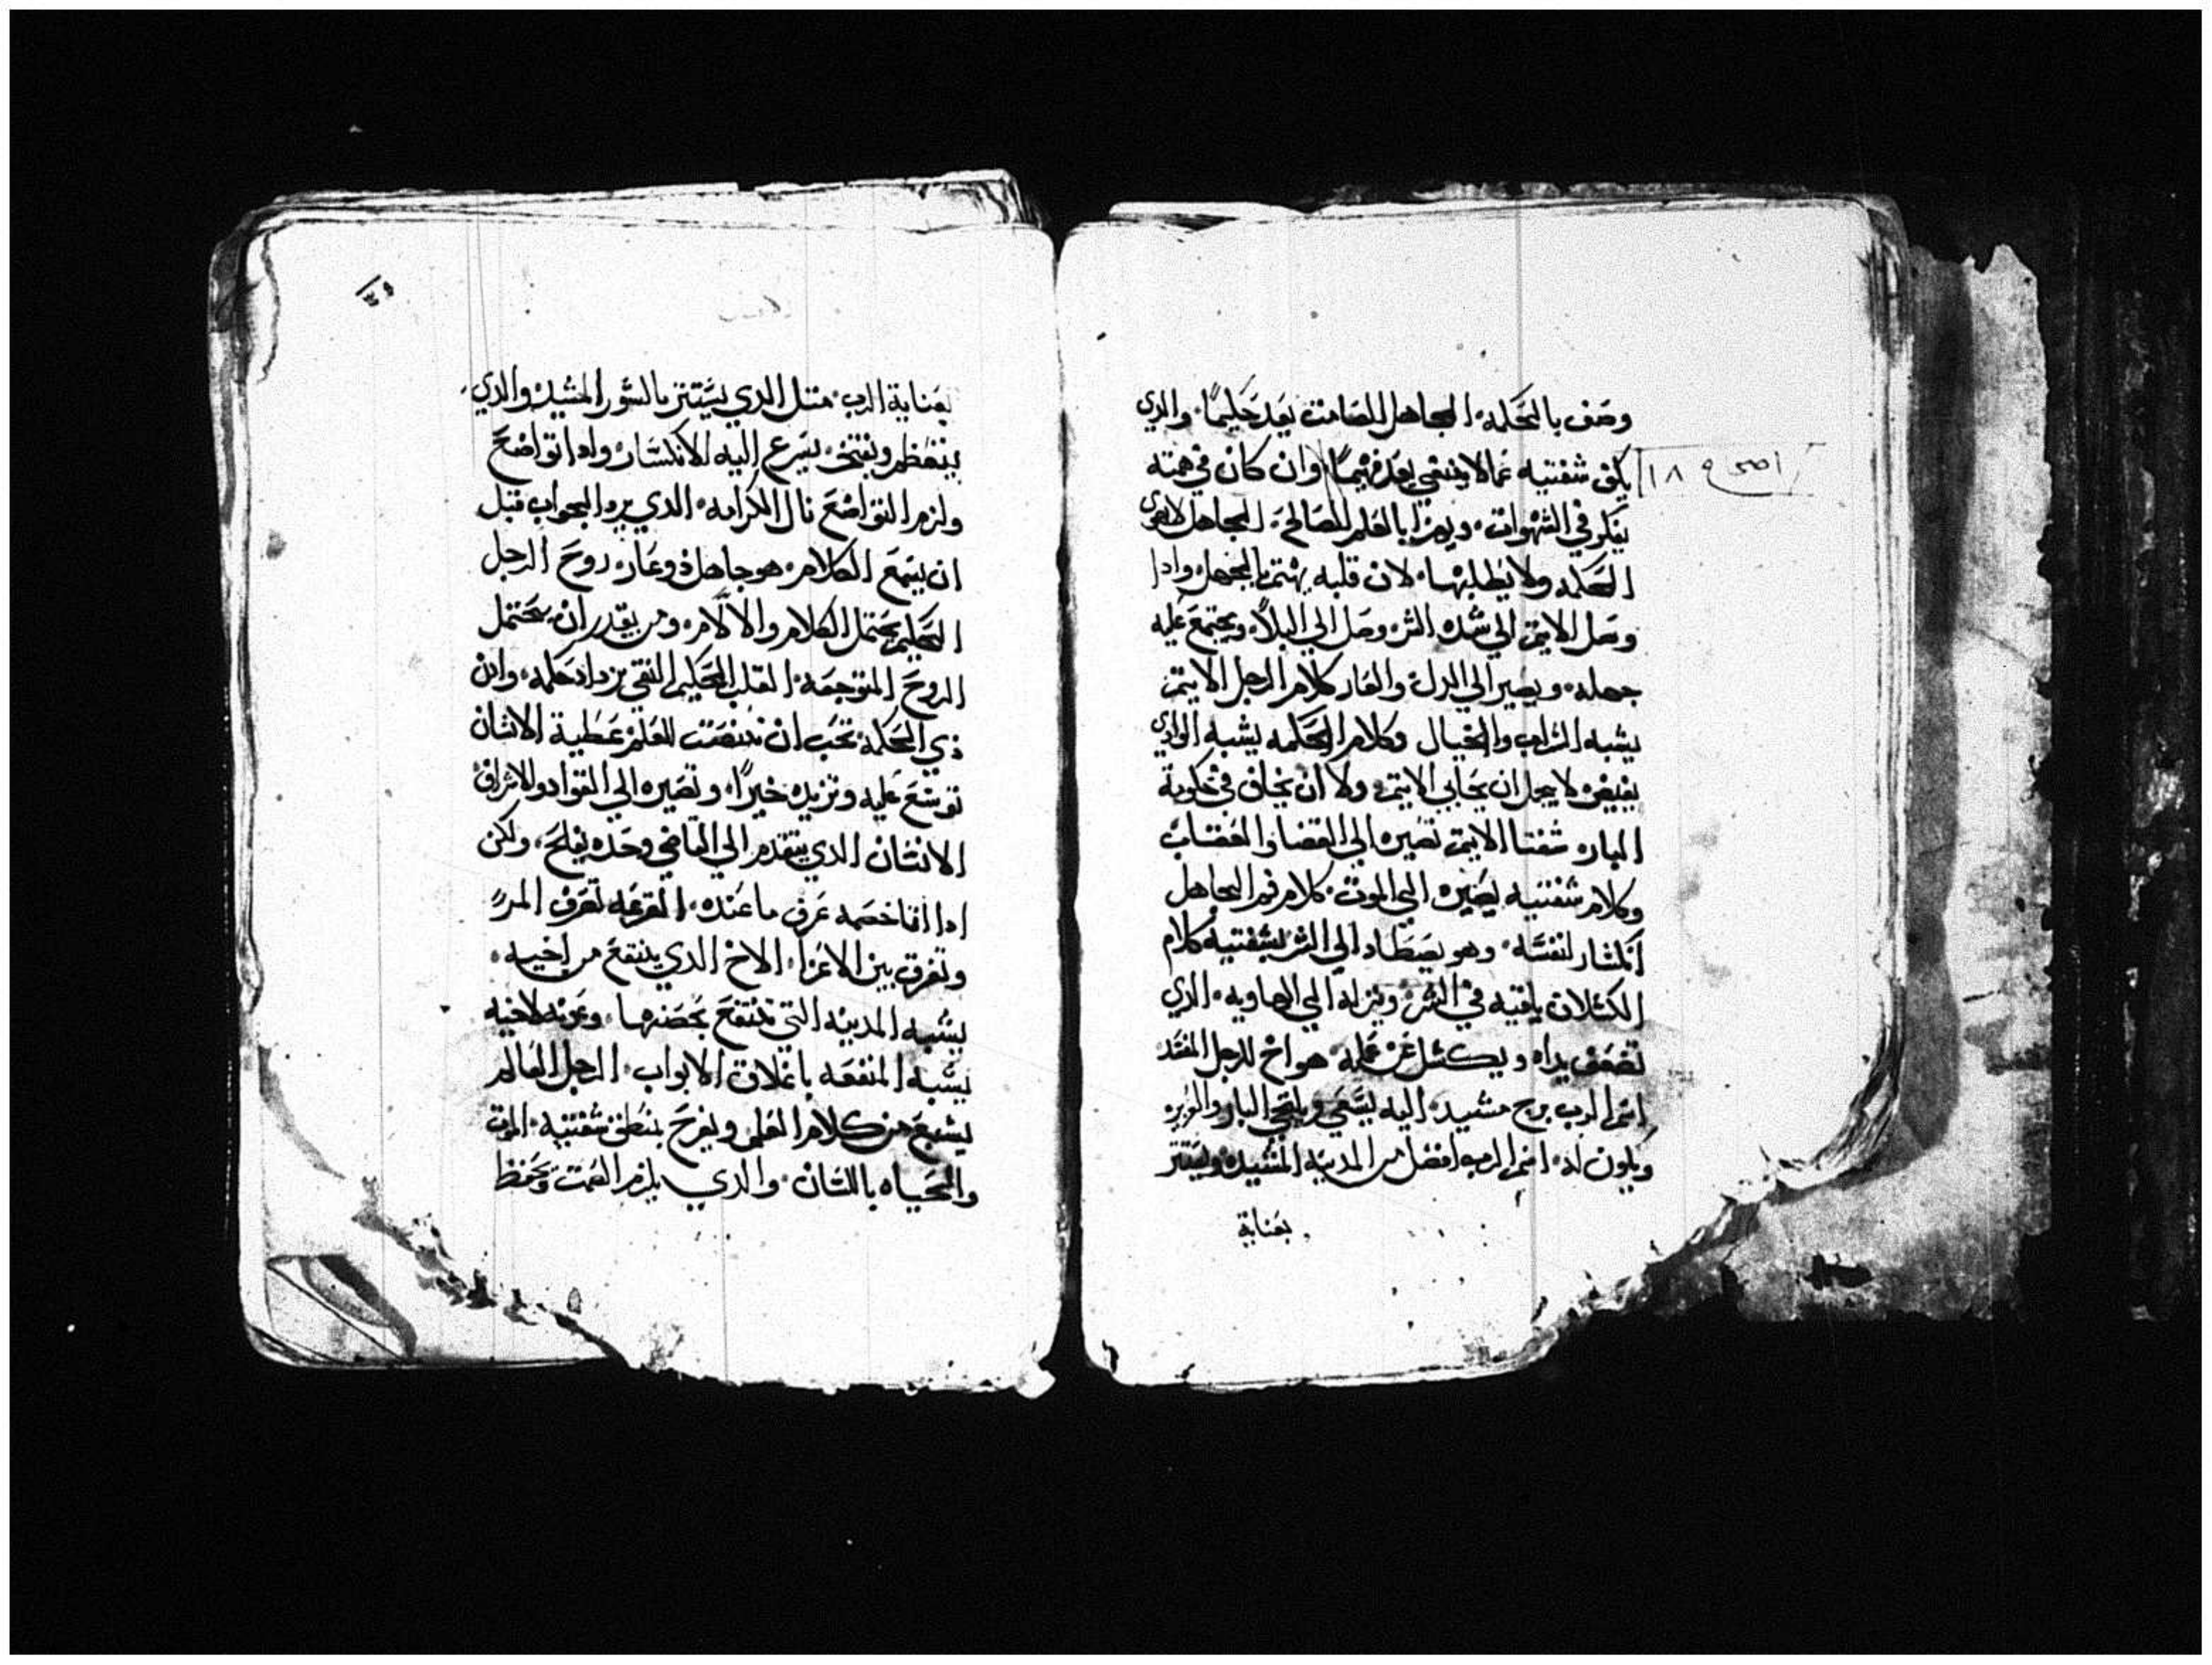 وصف بالحكمه الجاهل الصامت يعد حليمًا والدي
اصحاح ١٨
يكف شفتيه عما لا ينبغي يعد فهيمًا وان كان في همته
يفكر في الشهوات ويهزا بالعلم الصالح الجاهل لا يهوي
الحكمه ولا يطلبها لان قلبه يهتم بالجهل وادا
وصل الاثيم الي شده الشر وصل الي البلا ويجتمع عليه
جهله ويصير الي الدل والعار كلام الرجل الاثيم
يشبه السراب والخيال وكلام الحكمه يشبه الوادي
يفيض لا يجمل ان يحابي الاثيم ولا ان يخاف في حكومة
الباره شفتا الاثيم تصيره الي القضا والغضب
وكلام شفتيه يصيره الي الموت كلام فم الجاهل
انكسار لنفسه وهو يصطاد الي الشر بشفتيه كلام
الكسلان يلقيه في الشر وينزله الي الهاويه الدي
تضعف يداه ويكسل عن عمله هو اخ للرجل المفسد
اسم الرب برج مشيد اليه يسعي ويلتجي البار والغيره
ويكون له اسم الرب افضل من المدينه المشيده ويستتر
بعناية
بعناية الرب متل الدي يستتر بالسور المشيد والدي
يتعظم ويفتخر يسرع اليه الانكسار وادا تواضع
ولزم التواضع نال الكرامه الدي يرد الجواب قبل
ان يسمع الكلام هو جاهل دو عار روح الرجل
الحليم يحتمل الكلام والالام ومن يقدر ان يحتمل
الروح المتوجعه القلب الحكيم النقي يزداد حكمه وادن
دي الحكمه تحب ان تنصت للعلم عطية الانسان
توسع عليه وتزيده خيرًا وتصيره الي القواد والاشراف
الانسان الدي يتقدم الي القاضي وحده يفلح ولكن
ادا اتا خصمه عرف ما عنده القرعه تعرف المرء
وتفرق بين الاعزا الاخ الدي ينتفع من اخيه
يشبه المدينه التي تنتفع بحصنها وعونه لاخيه
يشبه المنفعه باغلاق الابواب الرجل العالم
يشبع من كلام العلم ويفرح بنطق شفتيه الموت
والحياه باللسان والدي يلزم الصمت ويحفظ